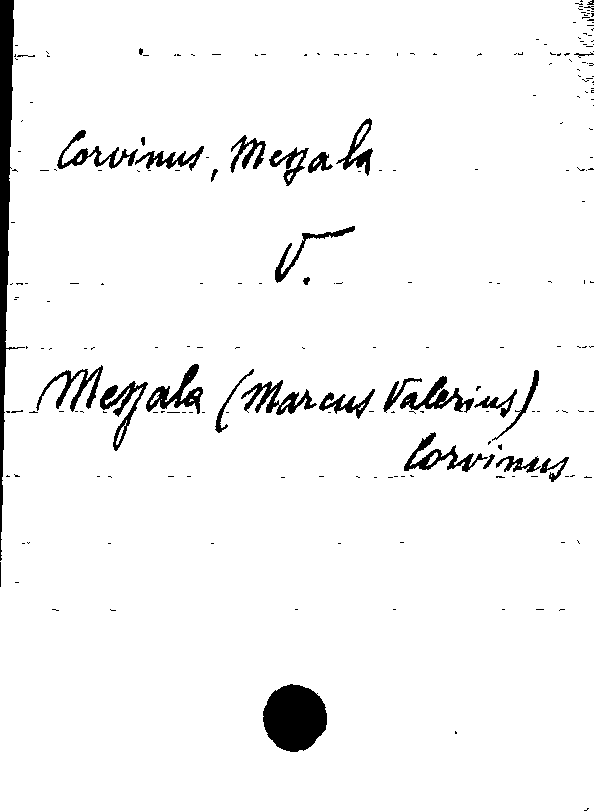 Corvinus, Messala
V.
Messala (Marcus Valerius)
Corvinus